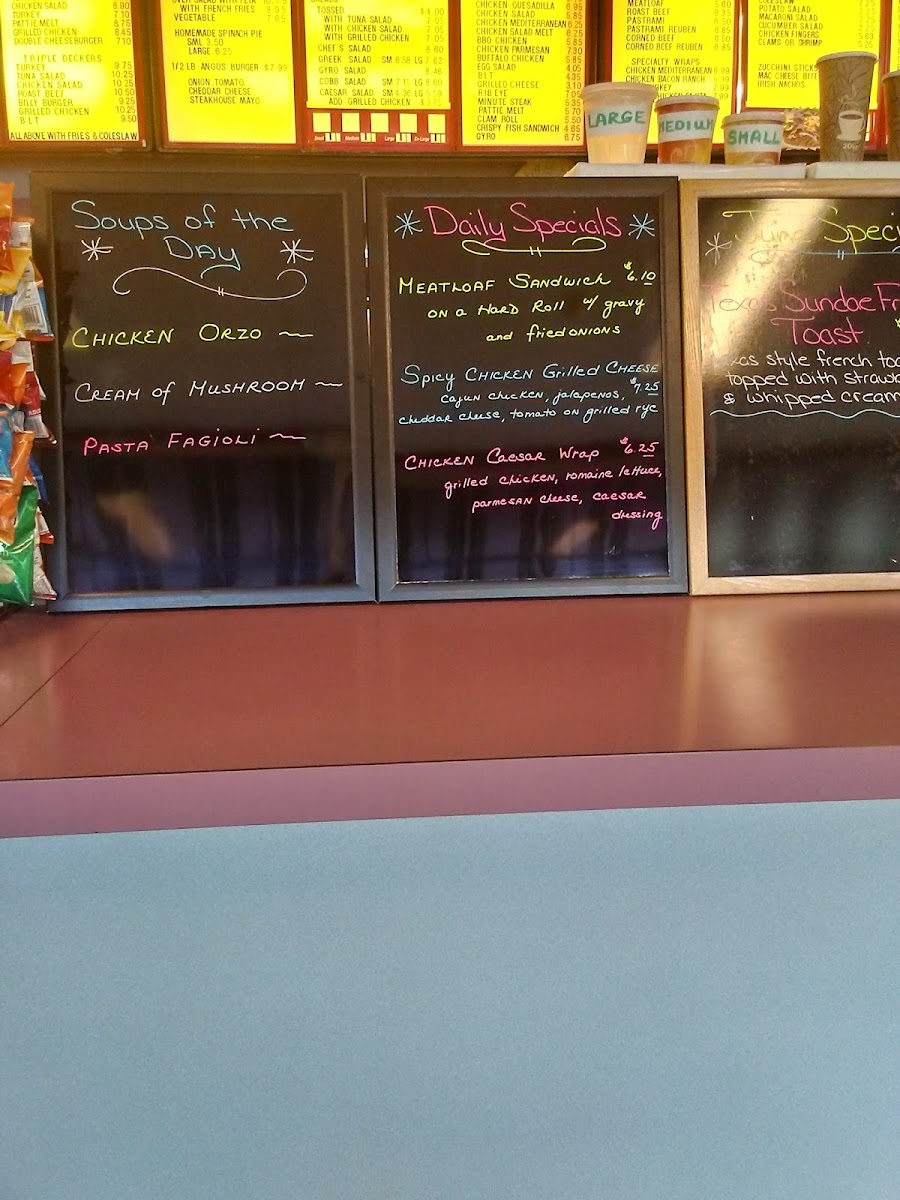 CHICKEN SALAD 8.90
TURKEY 7.10
PATTIE MELT 8.75
GRILLED CHICKEN 8.45
DOUBLE CHEESEBURGER 7.10
TRIPLE DECKERS
TURKEY 9.75
TUNA SALAD 10.25
CHICKEN SALAD 10.25
ROAST BEEF 10.50
BILLY BURGER 9.25
GRILLED CHICKEN 10.25
B L T 9.50
ALL ABOVE WITH FRIES & COLESLAW
WITH FRENCH FRIES 9.95
VEGETABLE 7.65
HOMEMADE SPINACH PIE
SML 3.50
LARGE 6.25
1/2 LB ANGUS BURGER $7.99
ONION, TOMATO
CHEDDAR CHEESE
STEAKHOUSE MAYO
TOSSED $4.00
WITH TUNA SALAD 7.05
WITH CHICKEN SALAD 7.05
WITH GRILLED CHICKEN 7.05
CHEF'S SALAD 8.60
GREEK SALAD SM 6.58 LG 7.62
GYRO SALAD 8.46
COBB SALAD SM 7.15 LG 8.60
CAESAR SALAD SM 4.36 LG 5.59
ADD GRILLED CHICKEN $3.75
Small Medium Large Ex-Large
CHICKEN QUESADILLA 6.95
CHICKEN SALAD 5.85
CHICKEN MEDITERRANEAN 6.25
CHICKEN SALAD MELT 6.25
BBQ CHICKEN 5.85
CHICKEN PARMESAN 7.30
BUFFALO CHICKEN 5.85
EGG SALAD 4.05
B L T 4.35
GRILLED CHEESE 3.10
RIB EYE 7.05
MINUTE STEAK 5.35
PATTIE MELT 5.70
CLAM ROLL 5.50
CRISPY FISH SANDWICH 4.65
GYRO 6.75
MEATLOAF 5.60
ROAST BEEF
PASTRAMI
PASTRAMI REUBEN
CORNED BEEF
CORNED BEEF REUBEN
SPECIALTY WRAPS
CHICKEN MEDITERRANEAN
CHICKEN BACON RANCH
COLESLAW
POTATO SALAD
MACARONI SALAD
CUCUMBER SALAD
CHICKEN FINGERS
CLAMS OR SHRIMP 5.25
ZUCCHINI STICKS
MAC CHEESE BITES
IRISH NACHOS
LARGE
MEDIUM
SMALL
Soups of the
Day
CHICKEN ORZO
CREAM of MUSHROOM
PASTA FAGIOLI
Daily Specials
MEATLOAF SANDWICH $6.10
ON A HARD ROLL w/ gravy
and fried onions
Spicy CHICKEN Grilled CHEESE
cajun chicken, jalapenos, $7.25
cheddar cheese, tomato on grilled rye
CHICKEN CAESAR Wrap $6.25
grilled chicken, romaine lettuce,
parmesan cheese, caesar
dressing
June Speci
Texas Sundae Fr
Toast
xas style french toa
topped with straw
& whipped cream